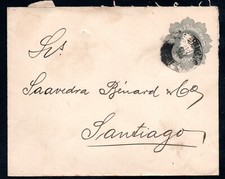 Srs.
Saavedra Bénard & Co
Santiago